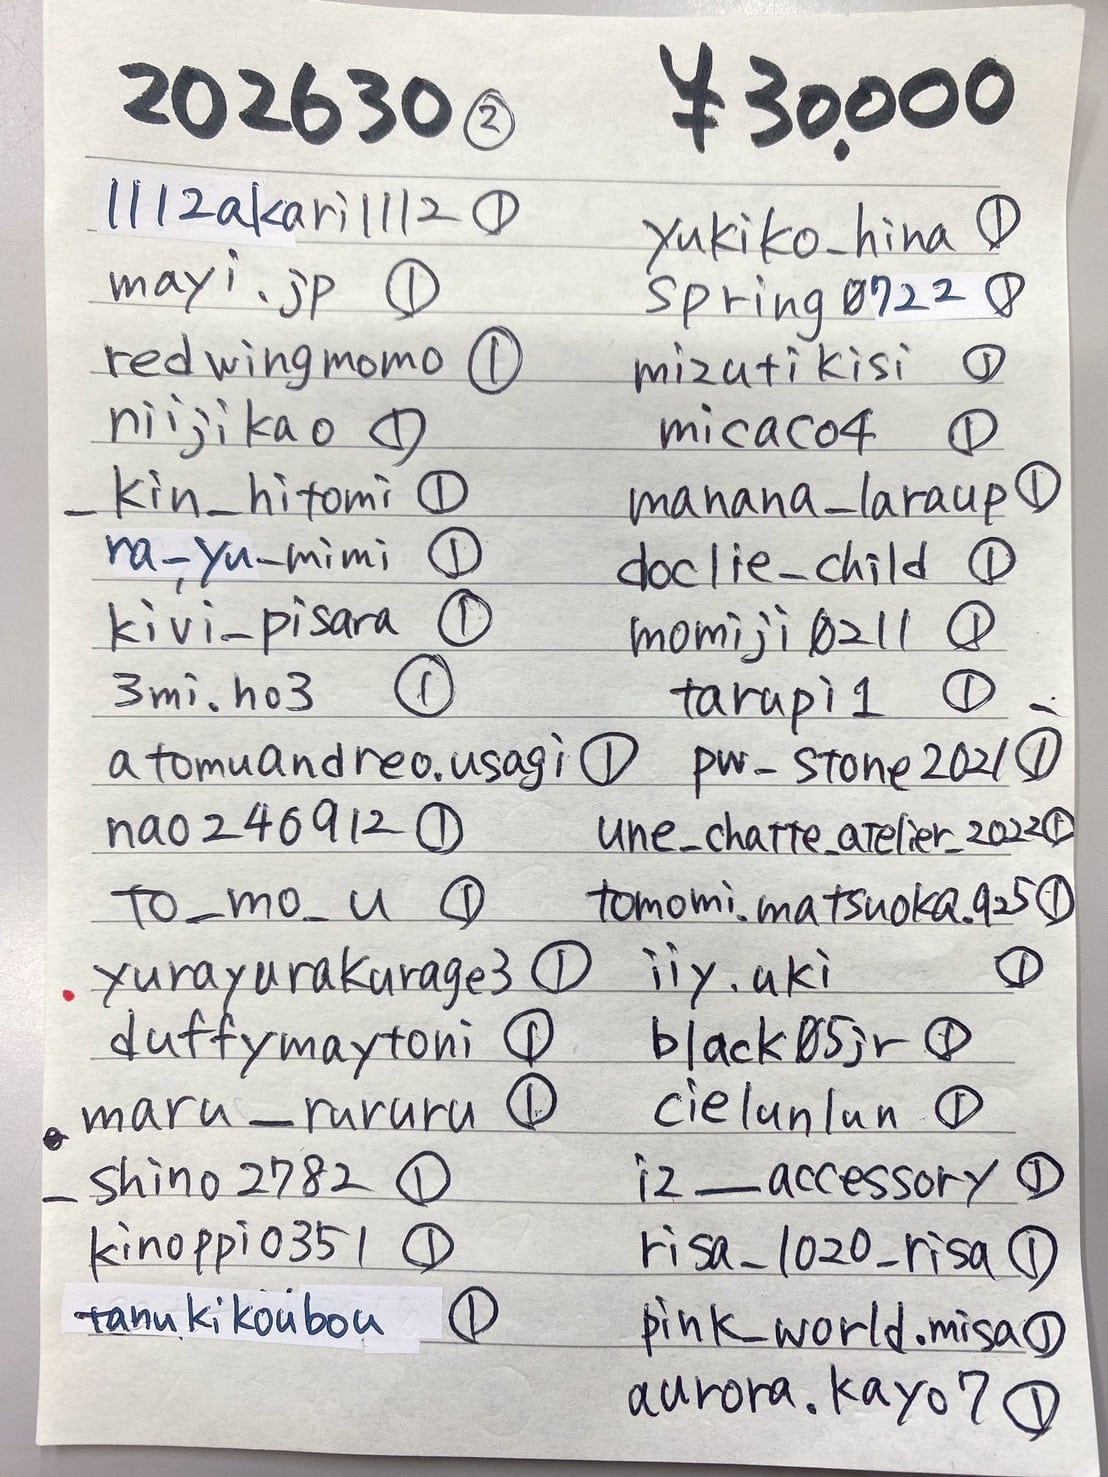 202630② ¥30,000
1112akari1112 ①
mayi.jp ①
redwingmomo ①
niijikao ①
_kin_hitomi ①
ra_yu_mimi ①
kivi_pisara ①
3mi.ho3 ①
atomuandreo.usagi ①
nao246912 ①
to_mo_u ①
.yurayurakurage3 ①
duffymaytoni ①
.maru__rururu ①
_shino2782 ①
kinoppi0351 ①
tanukikoubou ①
yukiko_hina ①
spring0722 ①
mizutikisi ①
micaco4 ①
manana_laraup ①
doclie_child ①
momiji0211 ①
tarupi1 ①
pw_stone2021 ①
une_chatte_atelier_2022 ①
tomomi.matsuoka.925 ①
iiy.uki ①
black05jr ①
cielunlun ①
iz__accessory ①
risa_1020_risa ①
pink_world.misa ①
aurora.kayo7 ①